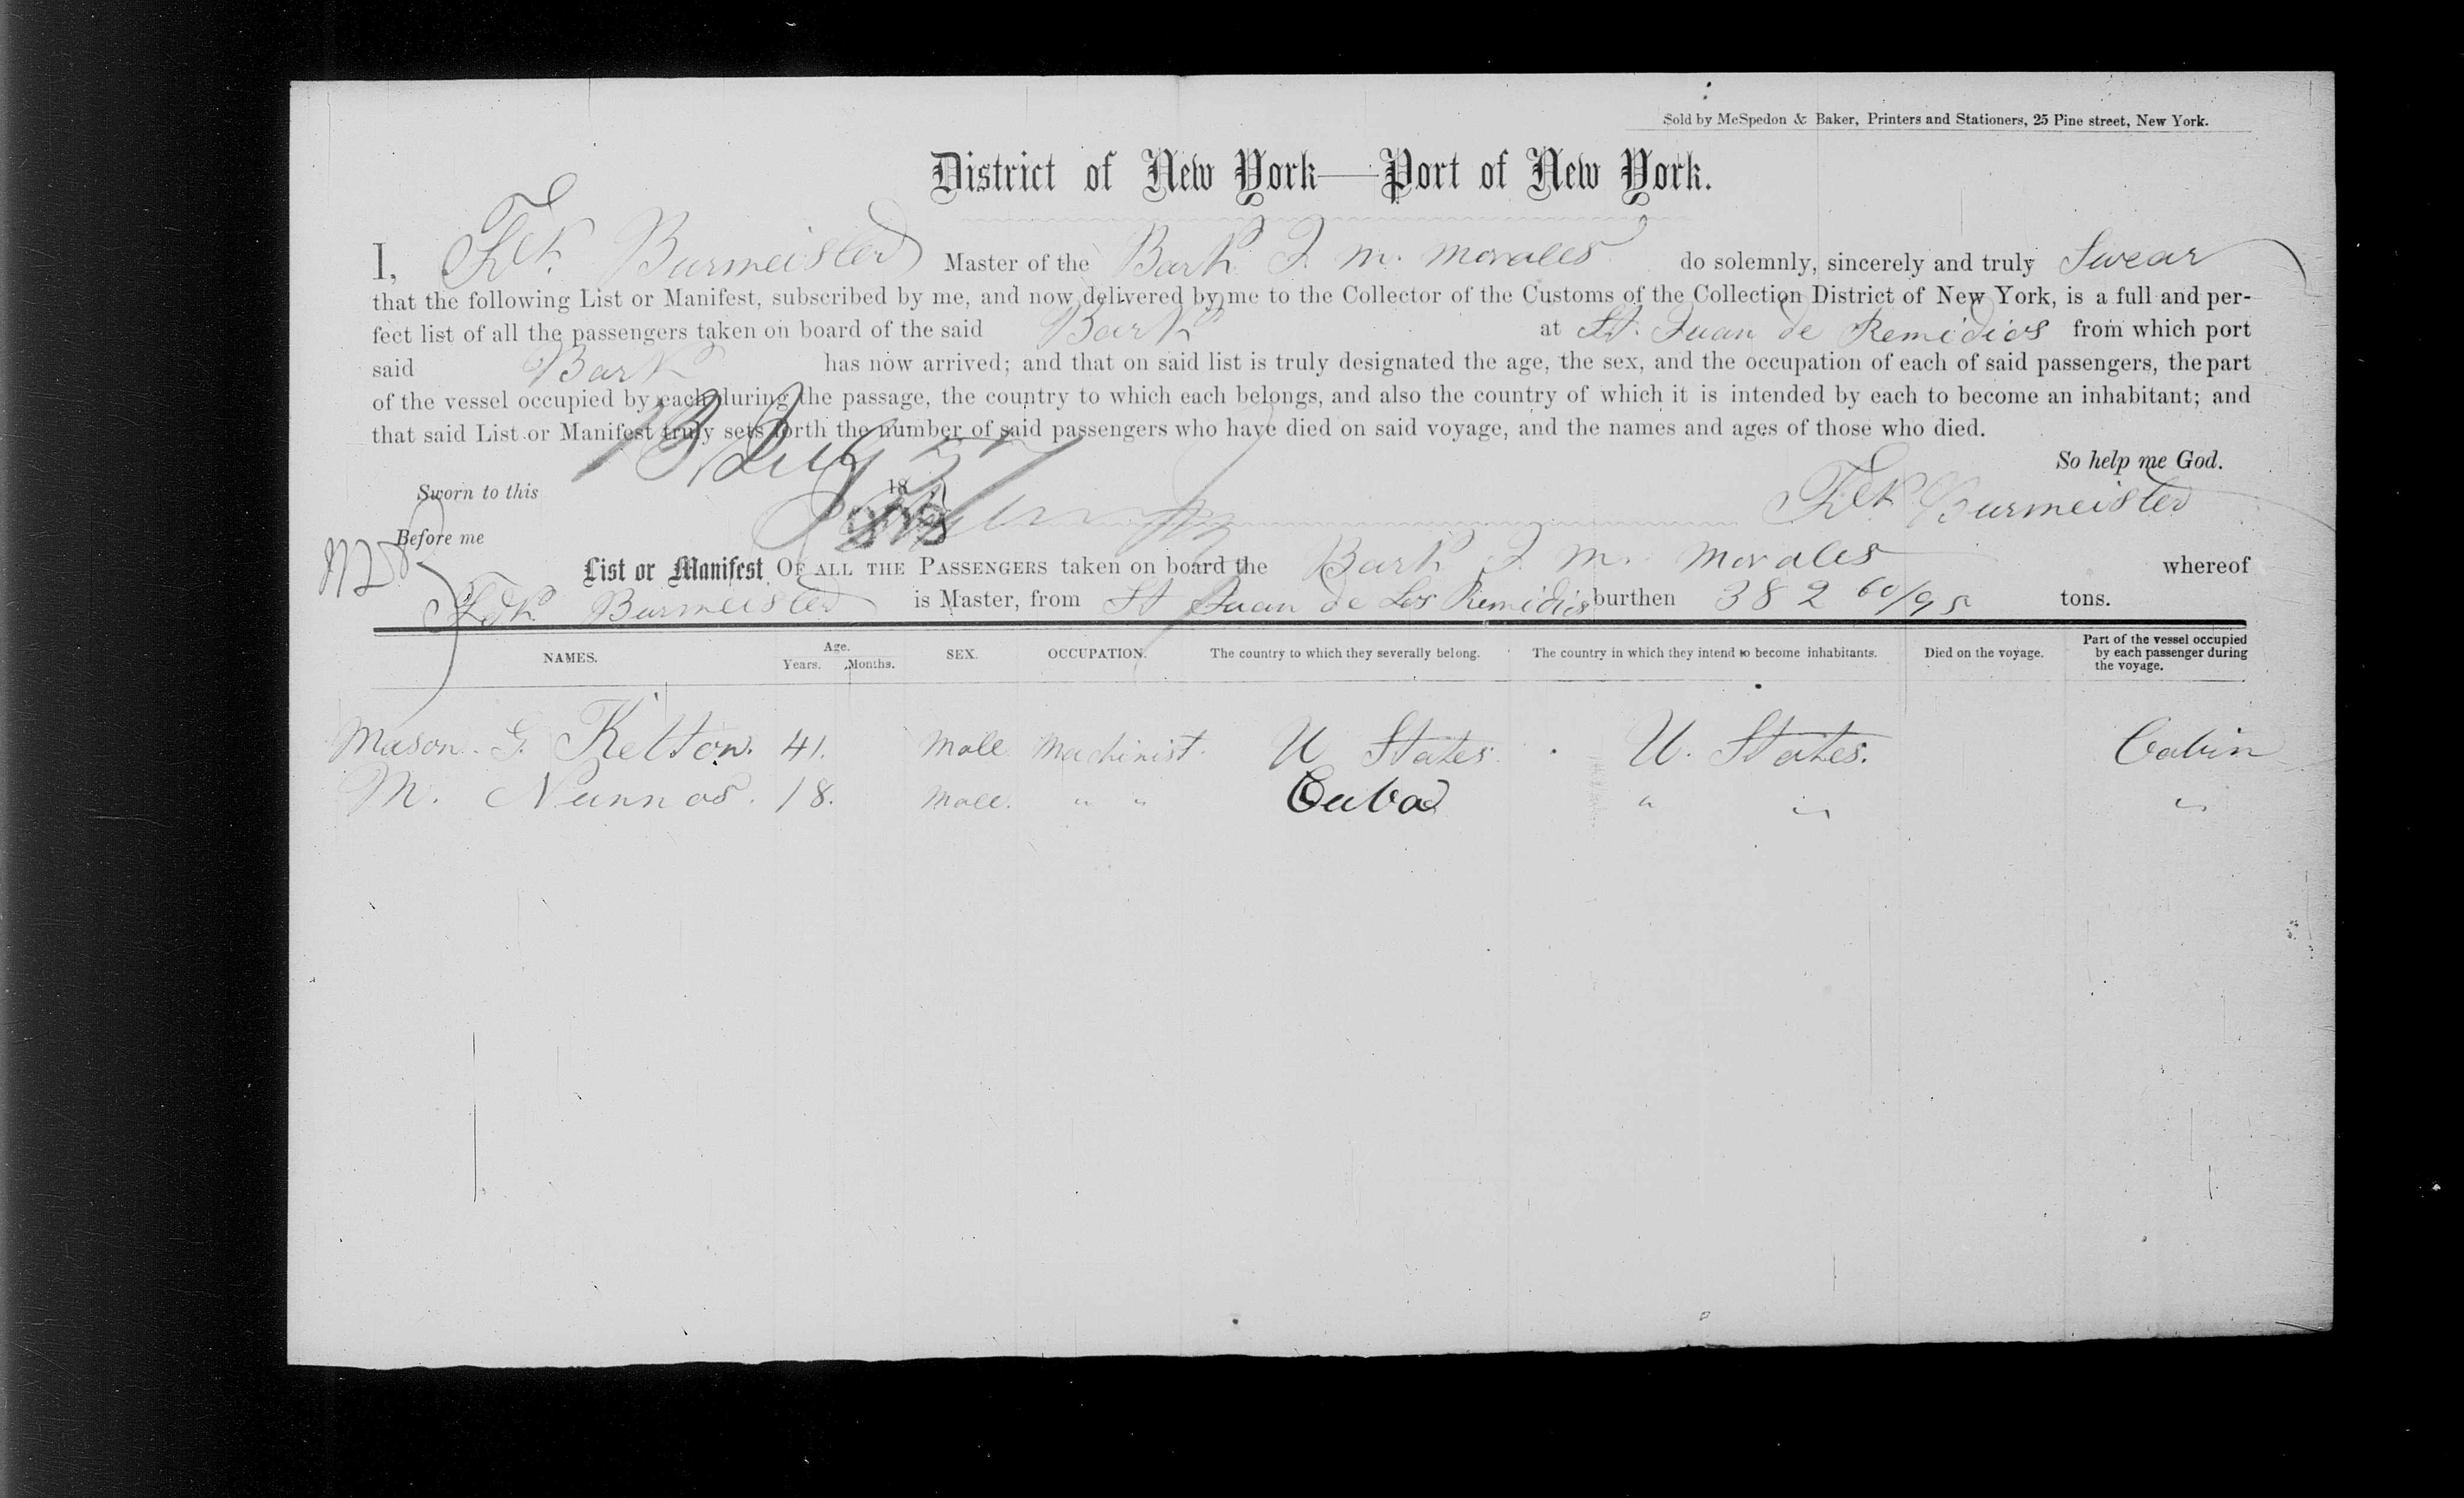 Sold by McSpedon & Baker, Printers and Stationers, 25 Pine street, New York.
District of New York—Port of New York.
I, Fdk. Burmeister Master of the Bark J. M. Morales do solemnly, sincerely and truly Swear
that the following List or Manifest, subscribed by me, and now delivered by me to the Collector of the Customs of the Collection District of New York, is a full and per-
fect list of all the passengers taken on board of the said Bark at St. Juan de Remedios from which port
said Bark has now arrived; and that on said list is truly designated the age, the sex, and the occupation of each of said passengers, the part
of the vessel occupied by each during the passage, the country to which each belongs, and also the country of which it is intended by each to become an inhabitant; and
that said List or Manifest truly sets forth the number of said passengers who have died on said voyage, and the names and ages of those who died.
So help me God.
Sworn to this 18
Fdk Burmeister
Before me
List or Manifest OF ALL THE PASSENGERS taken on board the Bark J. M. Morales whereof
Fdk. Burmeister is Master, from St Juan de Los Remidios burthen 382 60/95 tons.
NAMES. Age. Years. Months. SEX. OCCUPATION. The country to which they severally belong. The country in which they intend to become inhabitants. Died on the voyage. Part of the vessel occupied by each passenger during the voyage.
Mason. G. Kelton. 41. Male Machinist. U States. U. States. Cabin
M. Nunnos. 18. Male. " " Cuba " " "